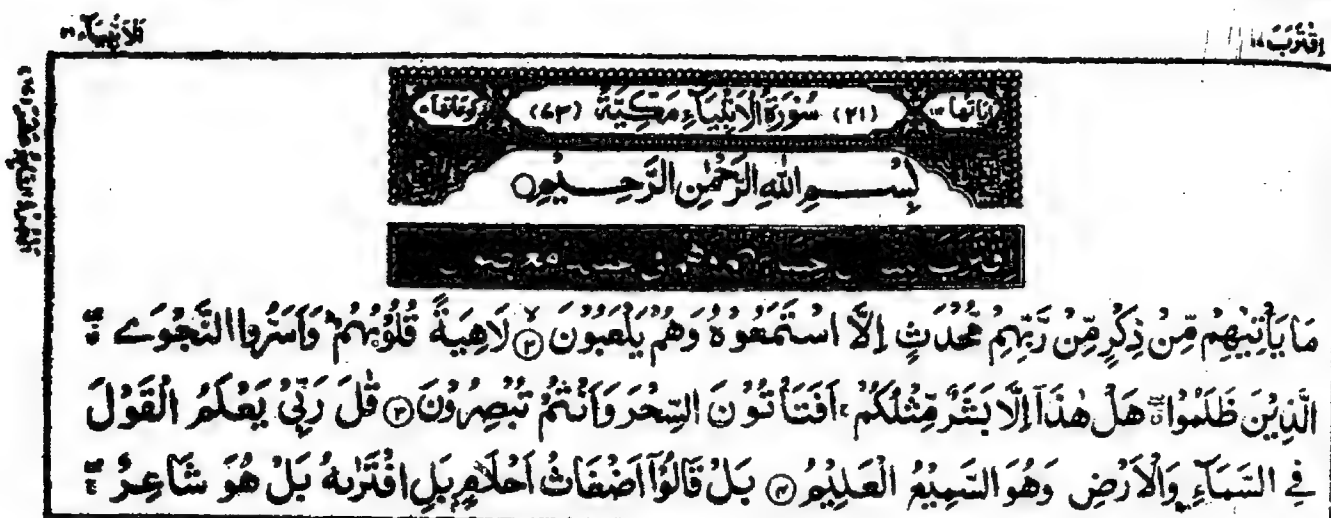 اِقْتَرَبَ ١٧
اَلْاَنْۢبِيَآء ٢١
اٰيَاتُهَا ١١٢ (٢١) سُوْرَةُ الْاَنْۢبِيَآءِ مَكِّيَّةٌ (٧٣) رُكُوْعَاتُهَا ٧
بِسْمِ اللّٰهِ الرَّحْمٰنِ الرَّحِيْمِ
اِقْتَرَبَ
مَا يَاْتِيْهِمْ مِّنْ ذِكْرٍ مِّنْ رَّبِّهِمْ مُّحْدَثٍ اِلَّا اسْتَمَعُوْهُ وَهُمْ يَلْعَبُوْنَ ۙ۝٢ لَاهِيَةً قُلُوْبُهُمْ ؕ وَاَسَرُّوا النَّجْوَے ۖۗ
الَّذِيْنَ ظَلَمُوْا ۖۗ هَلْ هٰذَاۤ اِلَّا بَشَرٌ مِّثْلُكُمْ ۚ اَفَتَاْتُوْنَ السِّحْرَ وَاَنْتُمْ تُبْصِرُوْنَ ۝٣ قٰلَ رَبِّيْ يَعْلَمُ الْقَوْلَ
فِي السَّمَآءِ وَالْاَرْضِ وَهُوَ السَّمِيْعُ الْعَلِيْمُ ۝٤ بَلْ قَالُوْۤا اَضْغَاثُ اَحْلَامٍۭ بَلِ افْتَرٰىهُ بَلْ هُوَ شَاعِرٌ ۖۚ